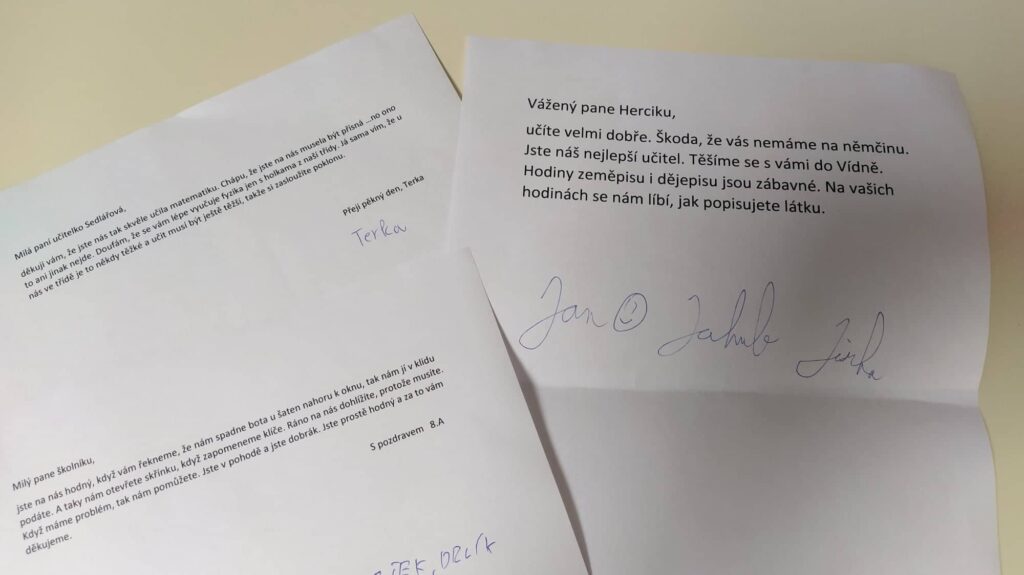 Milá paní učitelko Sedlářová,
děkuji vám, že jste nás tak skvěle učila matematiku. Chápu, že jste na nás musela být přísná ...no ono
to ani jinak nejde. Doufám, že se vám lépe vyučuje fyzika jen s holkama z naší třídy. Já sama vím, že u
nás ve třídě je to někdy těžké a učit musí být ještě těžší, takže si zasloužíte poklonu.
Přeji pěkný den, Terka
Terka
Milý pane školníku,
jste na nás hodný, když vám řekneme, že nám spadne bota u šaten nahoru k oknu, tak nám ji v klidu
podáte. A taky nám otevřete skřínku, když zapomeneme klíče. Ráno na nás dohlížíte, protože musíte.
Když máme problém, tak nám pomůžete. Jste v pohodě a jste dobrák. Jste prostě hodný a za to vám
děkujeme.
S pozdravem 8.A
Vážený pane Herciku,
učíte velmi dobře. Škoda, že vás nemáme na němčinu.
Jste náš nejlepší učitel. Těšíme se s vámi do Vídně.
Hodiny zeměpisu i dějepisu jsou zábavné. Na vašich
hodinách se nám líbí, jak popisujete látku.
Jan Jakub Jirka